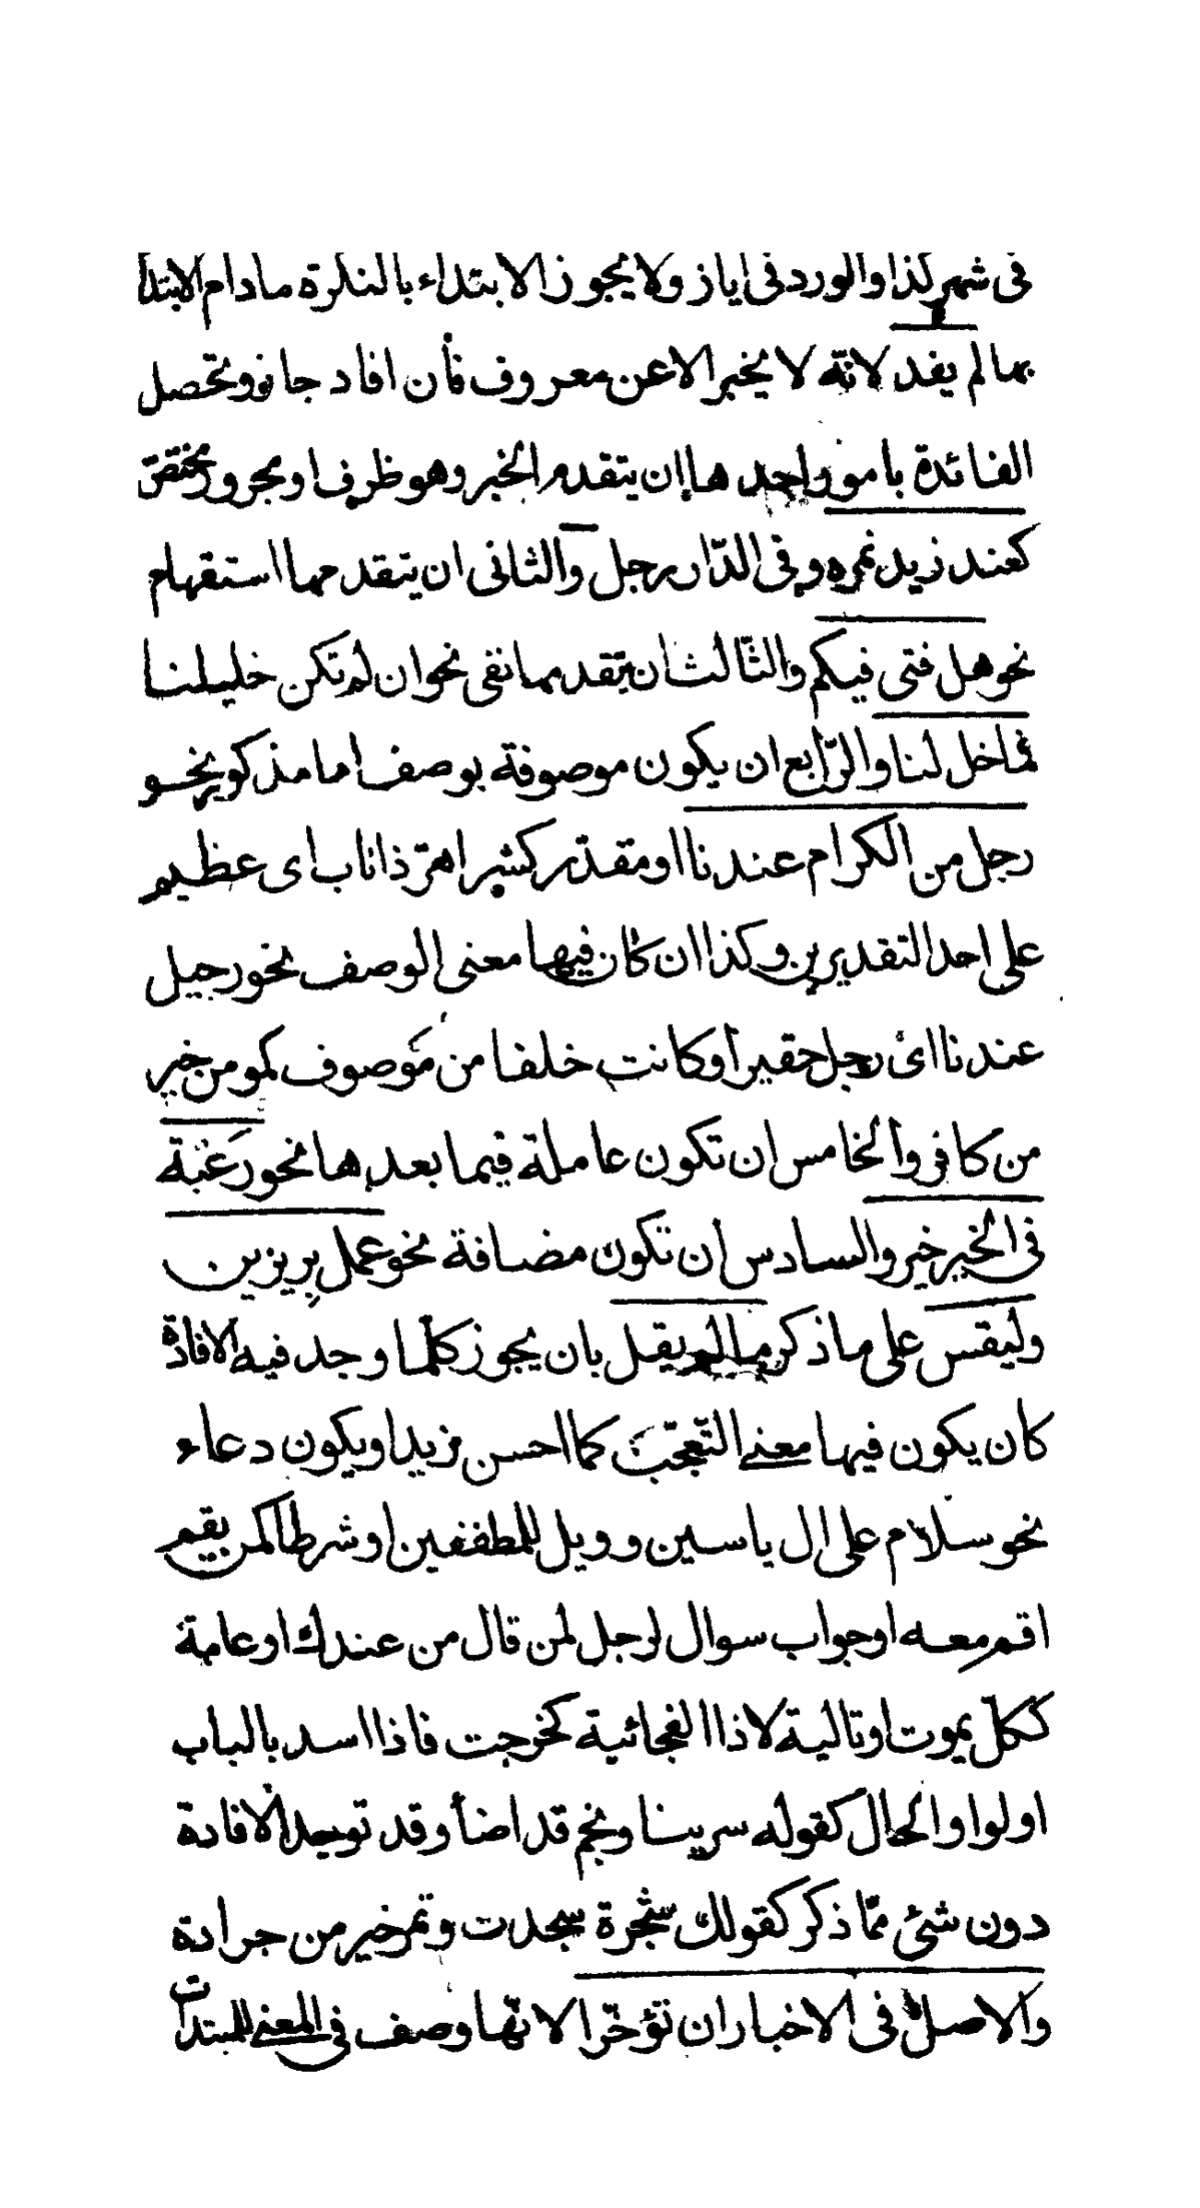 فى شهر كذا والورد فى اياز ولا يجوز الابتداء بالنكرة مادام الابتدا
بها لم يفد لانّه لا يخبر الا عن معروف فأن افاد جاز وتحصل
الفائدة بامور احدها ان يتقدم الخبر وهو ظرف او مجرور مختصّ
كعند زيد نمره وفى الدّار رجل والثانى ان يتقدمها استفهام
نحو هل فتى فيكم والثّالث ان يتقدمها نفى نحو ان لم تكن خليلنا
فما خل لنا والرّابع ان يكون موصوفة بوصف اما مذكور نحو
رجل من الكرام عندنا او مقدّر كشر اهرّ ذا ناب اى عظيم
على احد التقديرين وكذا ان كان فيها معنى الوصف نحو رجيل
عندنا اى رجل حقير أو كانت خلفا من موصوف كمومن خير
من كافر والخامس ان تكون عاملة فيما بعدها نحو رغبة
فى الخير خير والسادس ان تكون مضافة نحو عمل بر يزين
وليقس على ما ذكر ما لم يقل بان يجوز كلّما وجد فيه الافادة
كان يكون فيها معنى التّعجّب كما احسن زيدا ويكون دعاء
نحو سلام على ال ياسين وويل للمطففين او شرطا كمن يقم
اقم معه او جواب سوال لرجل لمن قال من عندك او عامة
ككلّ يموت او تالية لاذا الفجائية كخرجت فاذا اسد بالباب
او لواو الحال كقوله سرينا ونجم قد اضأ وقد توجد الافادة
دون شئ ممّا ذكر كقولك شجرة سجدت وتمر خير من جرادة
والاصل فى الاخبار ان تؤخّرا لانّها وصف فى المعنى للمبتدات